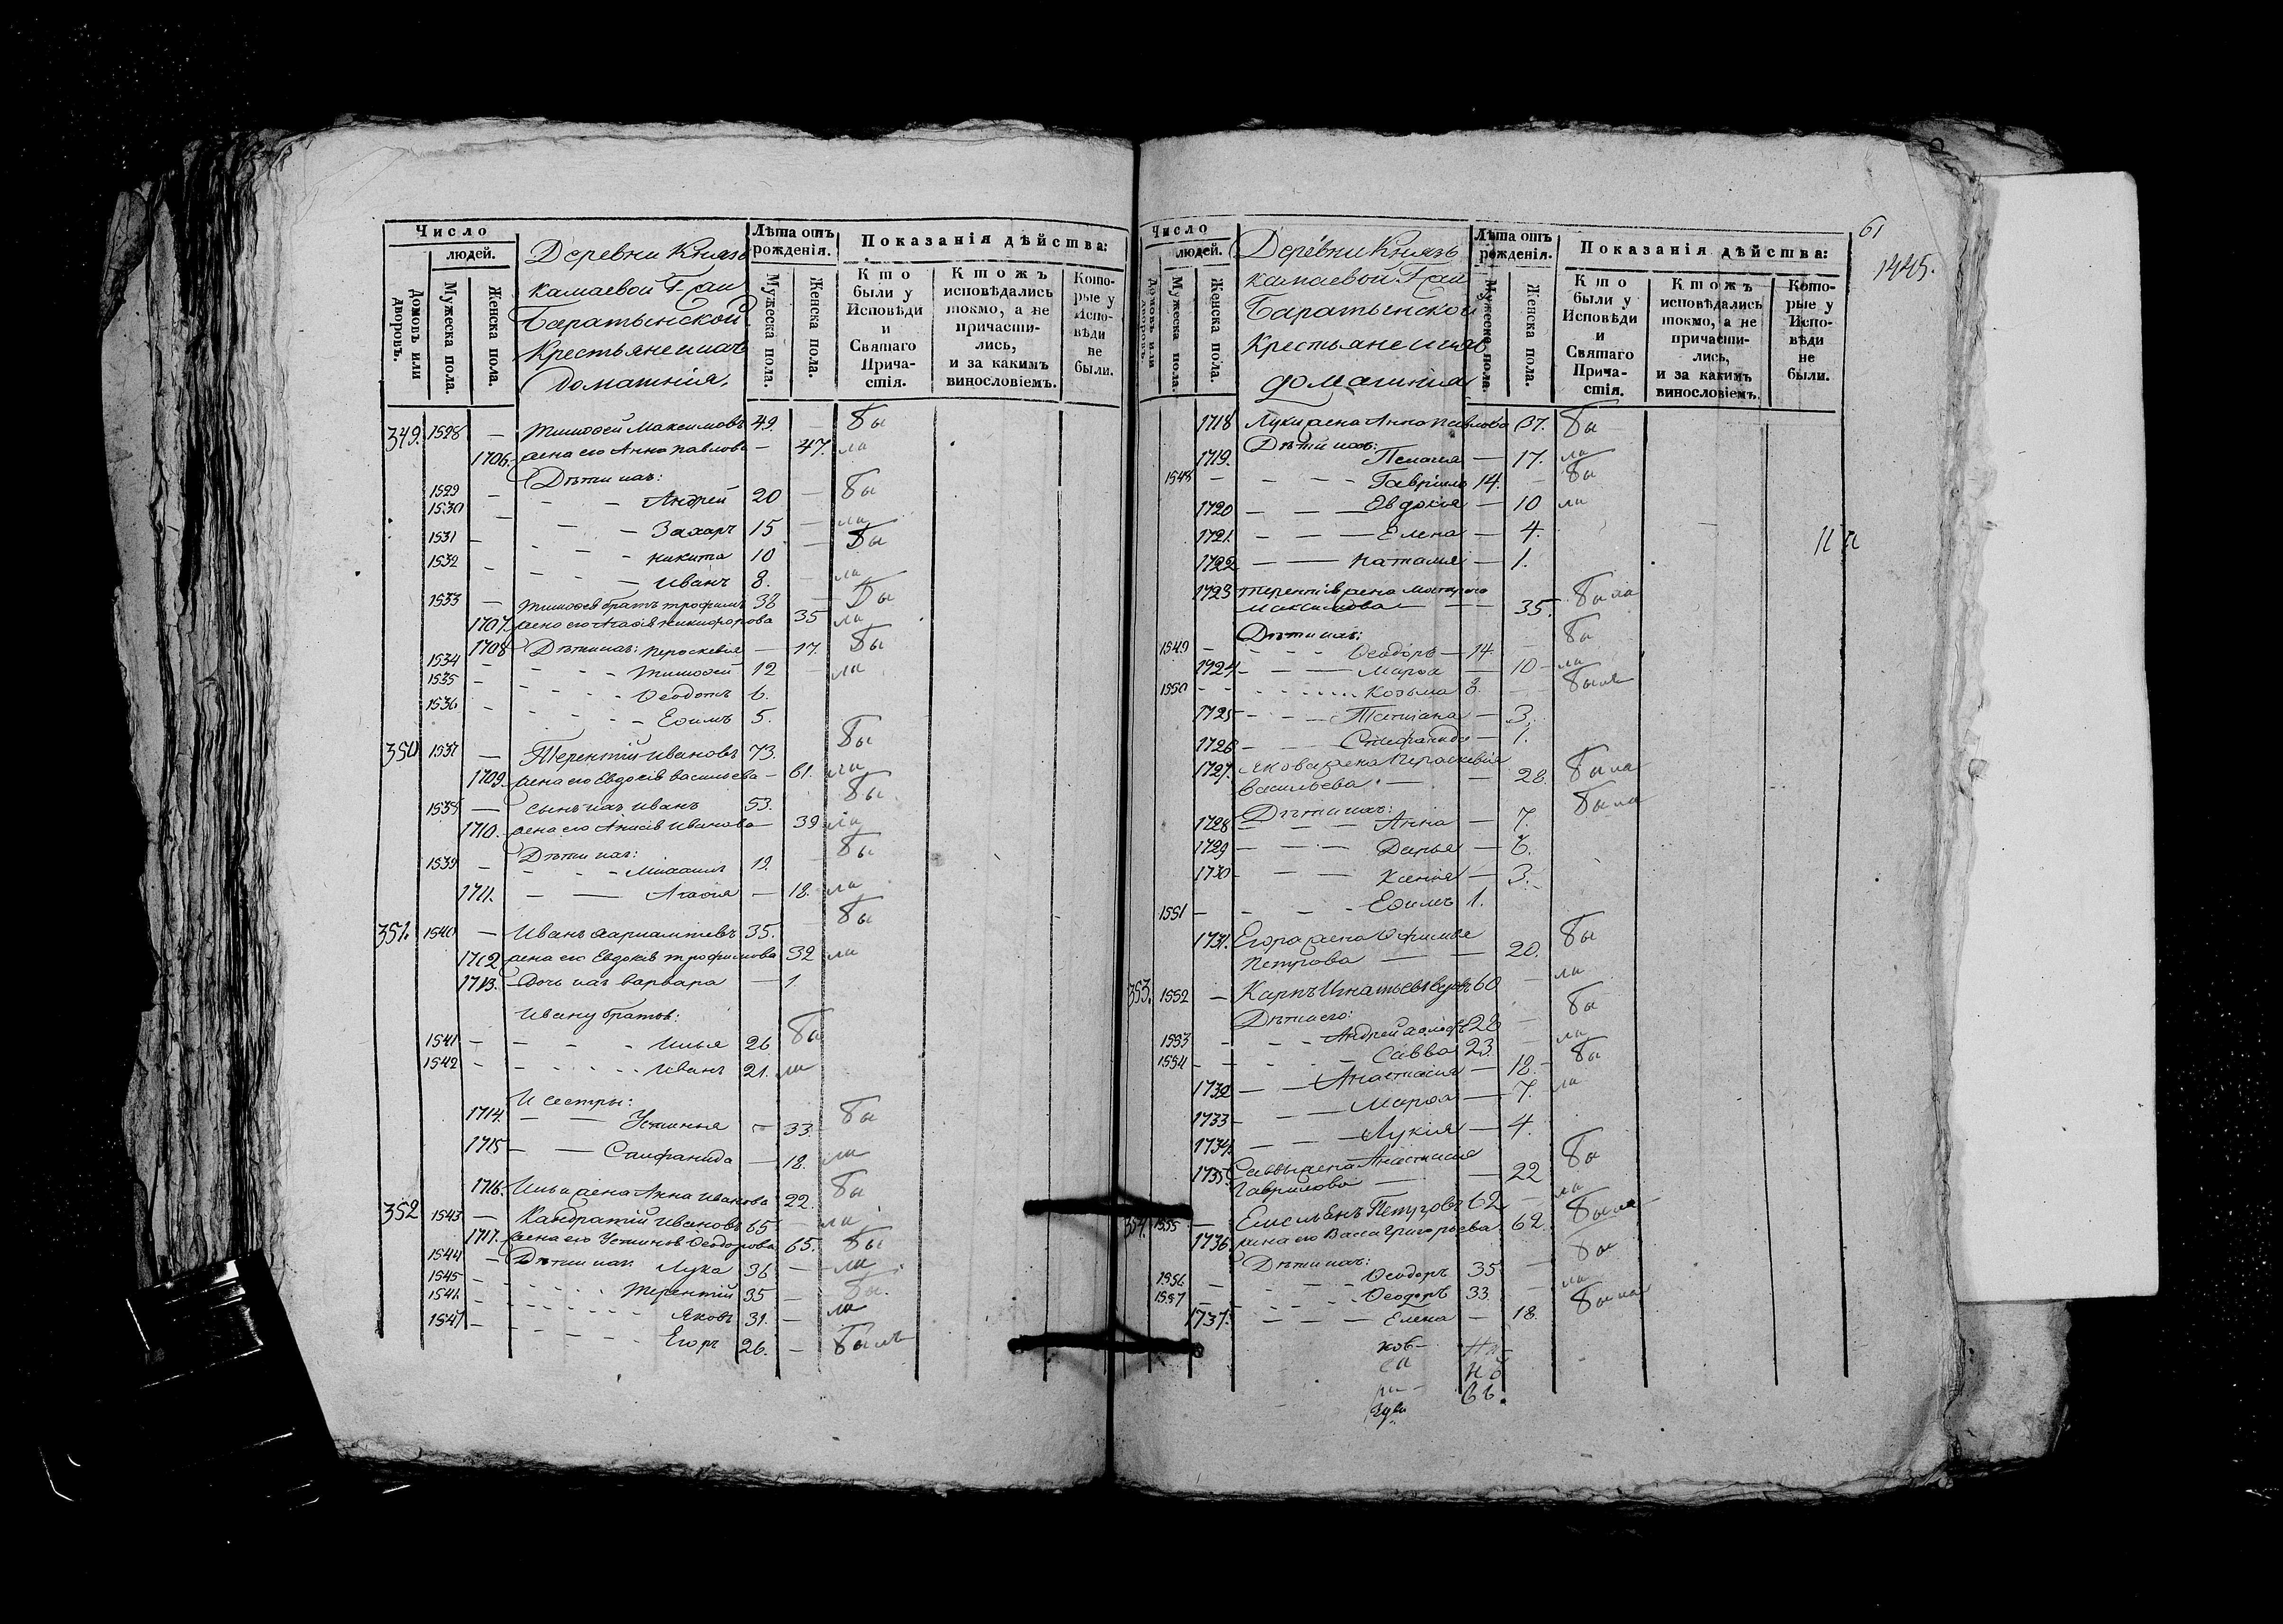 Число
людей.
Домовъ или дворовъ.
Мужеска пола.
Женска пола.
Деревни Князь
камаевой Гпи
Баратынской
Крестьяне и ихъ
домашнія.
Лѣта отъ рожденія.
Мужеска пола.
Женска пола.
Показанія дѣйства:
Кто были у Исповѣди и Святаго Прича-стія.
Ктожъ исповѣдались токмо, а не причасти-лись, и за какимъ винословіемъ.
Кото-рые у Испо-вѣди не были.
349. 1528 — Тимоѳей Максимовъ 49. — бы
1706. жена его Анна павлова — 47. ла
Дѣти ихъ:
1529 — Андрей 20 — бы
1530 — Захаръ 15 — ли
1531 — никита 10 — бы
1532 — Иванъ 8. — ли
1533 — Тимоѳея братъ трофимъ 38 — бы
1707. жена его Агаѳія никифорова 35 ли
1708 Дѣти ихъ: пероскевія — 17. бы
1534 — Тимоѳей 12 — ли
1535 — Ѳеодотъ 6.
1536 — Ефимъ 5.
350 1537 — Терентій Ивановъ 73. бы
1709. жена его Евдокія васильева — 61. ли
1538 — сынъ ихъ иванъ 53. бы
1710. жена его Анисія Иванова — 39 ли
Дѣти ихъ:
1539 — Михаилъ 19. бы
1711. — Агаѳія — 18. ли
351. 1540 — Иванъ 35. бы
1712 жена его Евдокія трофимова 32 ли
1713. — Дочь ихъ варвара — 1
Ивану братья:
1541 — Илья 26 бы
1542 — Иванъ 21. ли
И сестры:
1714. — Устинья — 33. бы
1715 — — 18. ли
1716. Ильи жена Анна иванова 22. бы
352 1543 — Кандратій Ивановъ 65 — ли
1717. жена его Устинья Ѳеодорова 65. бы
1544 — Дѣти ихъ Лука 36 — ли
1545 — Терентій 35 — бы.
1546 — Яковъ 31. — ли
1547 — Егоръ 26. — былъ
61
1445.
Число
людей.
Домовъ или дворовъ.
Мужеска пола.
Женска пола.
Деревни Князь
камаевой Гпи
Баратынской
Крестьяне и ихъ
домашнія
Лѣта отъ рожденія.
Мужеска пола.
Женска пола.
Показанія дѣйства:
Кто были у Исповѣди и Святаго Прича-стія.
Ктожъ исповѣдались токмо, а не причасти-лись, и за какимъ винословіемъ.
Кото-рые у Испо-вѣди не были.
1718 Луки жена Анна павлова 37. бы
Дѣти ихъ:
1719. Пелагея — 17. ли
1548 — Гаврило 14. — бы
1720 — Евдокія — 10 ли
1721. — Елена — 4.
1722 — Наталия — 1.
1723 терентія жена
Максимова — 35. была
Дѣти ихъ:
1549 — Ѳеодоръ — 14. — бы
1724 — Марѳа — 10 — ли
1550 — Козьма 8. — былъ
1725 — Татіана — 3.
1726 — Стефанида — 1.
1727. Якова жена Пераскевія
Васильева — 28. была
Дѣти ихъ:
1728 — Анна — 7. была
1729 — Дарья — 6.
1730 — Ксенія — 3.
1551 — Ефимъ 1.
1731. Егора жена Офимья
Петрова — 20. бы
353. 1552 — Карпъ Игнатьевъ вдовъ 60 — ли
Дѣти его:
1553 — Андрей холостъ 28 — бы
1554 — Савва 23. — ли
1732 — Анастасия — 18. — бы
1733 — Марѳа — 7. ли
1734. — Лукія — 4.
1735. Саввы жена Анастасия
Гаврилова — 22 бы
354. 1555 — Емельянъ Петровъ 62 — ли
1736. жена его Васса Григорьева 62. была
Дѣти ихъ:
1556 — Ѳеодоръ 35 — бы
1557 — Ѳеодоръ 33. — ли
1737. — Елена — 18. была